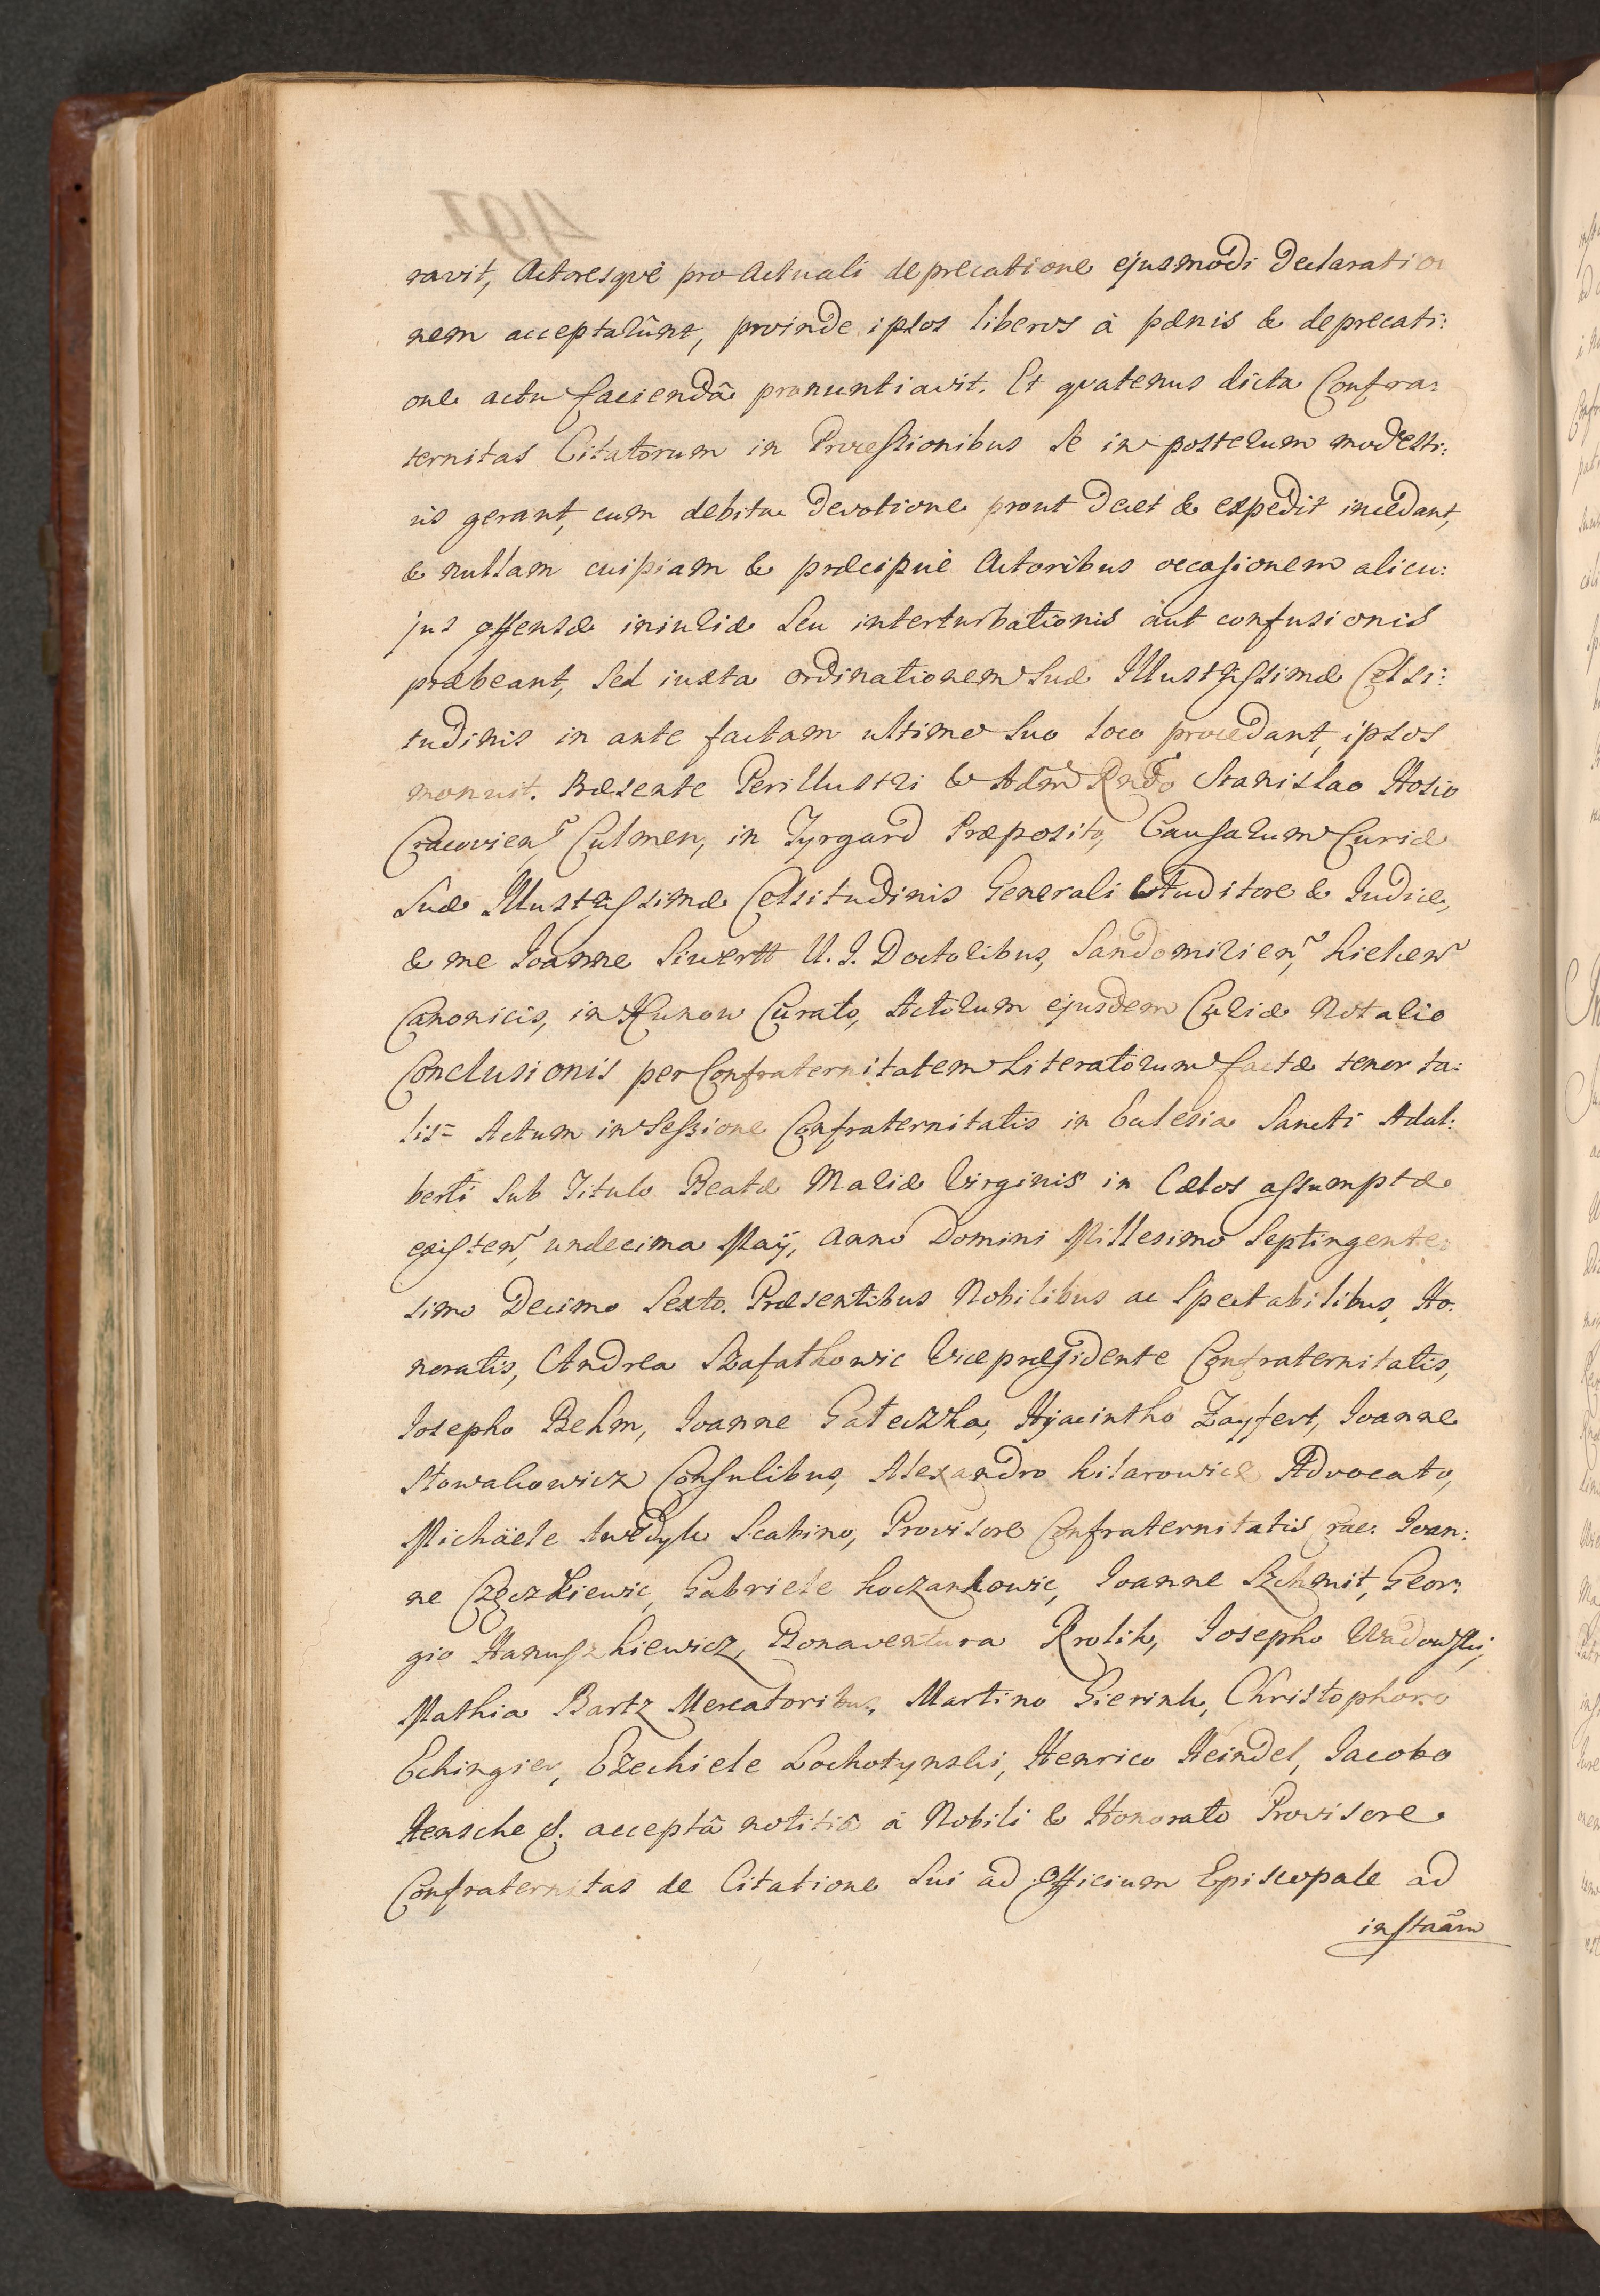 ravit, Actoresqvè pro Actuali deprecatione ejusmodi Declaratio
nem acceptarûnt, proinde ipsos liberos à pænis & deprecati:
one actu faciendâ pronuntiavit. Et qvatenus dicta Confra:
ternitas Citatorum in Processionibus se in posterum modesti:
ùs gerant, cum debita devotione prout decet & expedit incedant,
& nullam cuipiam & præcipuè Actoribus occasionem alicu:
jus offensæ iniuriæ seu interturbationis aut confusionis
præbeant, sed iuxta ordinationem Suæ Illustrissimæ Celsi:
tudinis in ante factam ultimo suo loco procedant, ipsos
monuit. Præsente Perillustri & Adm Rndo Stanislao Hosio
Cracovien, Culmen, in Tyrgard Præposito, Causarum Curiæ
Suæ Illustrissimæ Celsitudinis Generali Auditore & Iudice,
& me Ioanne Siwertt U. I. Doctoribus, Sandomirien, Kielcen
Canonicis, in Kunow Curato, Actorum ejusdem Curiæ Notario
Conclusionis per Confraternitatem Literatorum factæ tenor ta:
lis= Actum in Sessione Confraternitatis in Eclesia Sancti Adal:
berti sub Titulo Beatæ Mariæ Virginis in Cælos assumptæ
existen, undecima Maij, Anno Domini Millesimo Septingente
simo Decimo Sexto. Præsentibus Nobilibus ac Spectabilibus, Ho:
noratis, Andrea Szafathowic Vicepræsidente Confraternitatis,
Iosepho Behm, Ioanne Gałeczka, Hyacintho Zayfert, Ioanne
Słowakowicz Consulibus, Alexandro Kilarowicz Advocato,
Michäele Awedyk Scabino, Provisore Confraternitatis rae: Ioan:
ne Czeczkiewic, Gabriele Koczankowic, Ioanne Szchmit, Geor:
gio Hanuszkiewicz, Bonaventura Krolik, Iosepho Wadowski,
Mathia Bartz Mercatoribus, Martino Gierink, Christophoro
Echingier, Ezechiele Lochotynski, Henrico Heindel, Iacobo
Hensche &. acceptâ notitiâ à Nobili & Honorato Provisore
Confraternitas de Citatione sui ad Officium Episcopale ad
instaãm